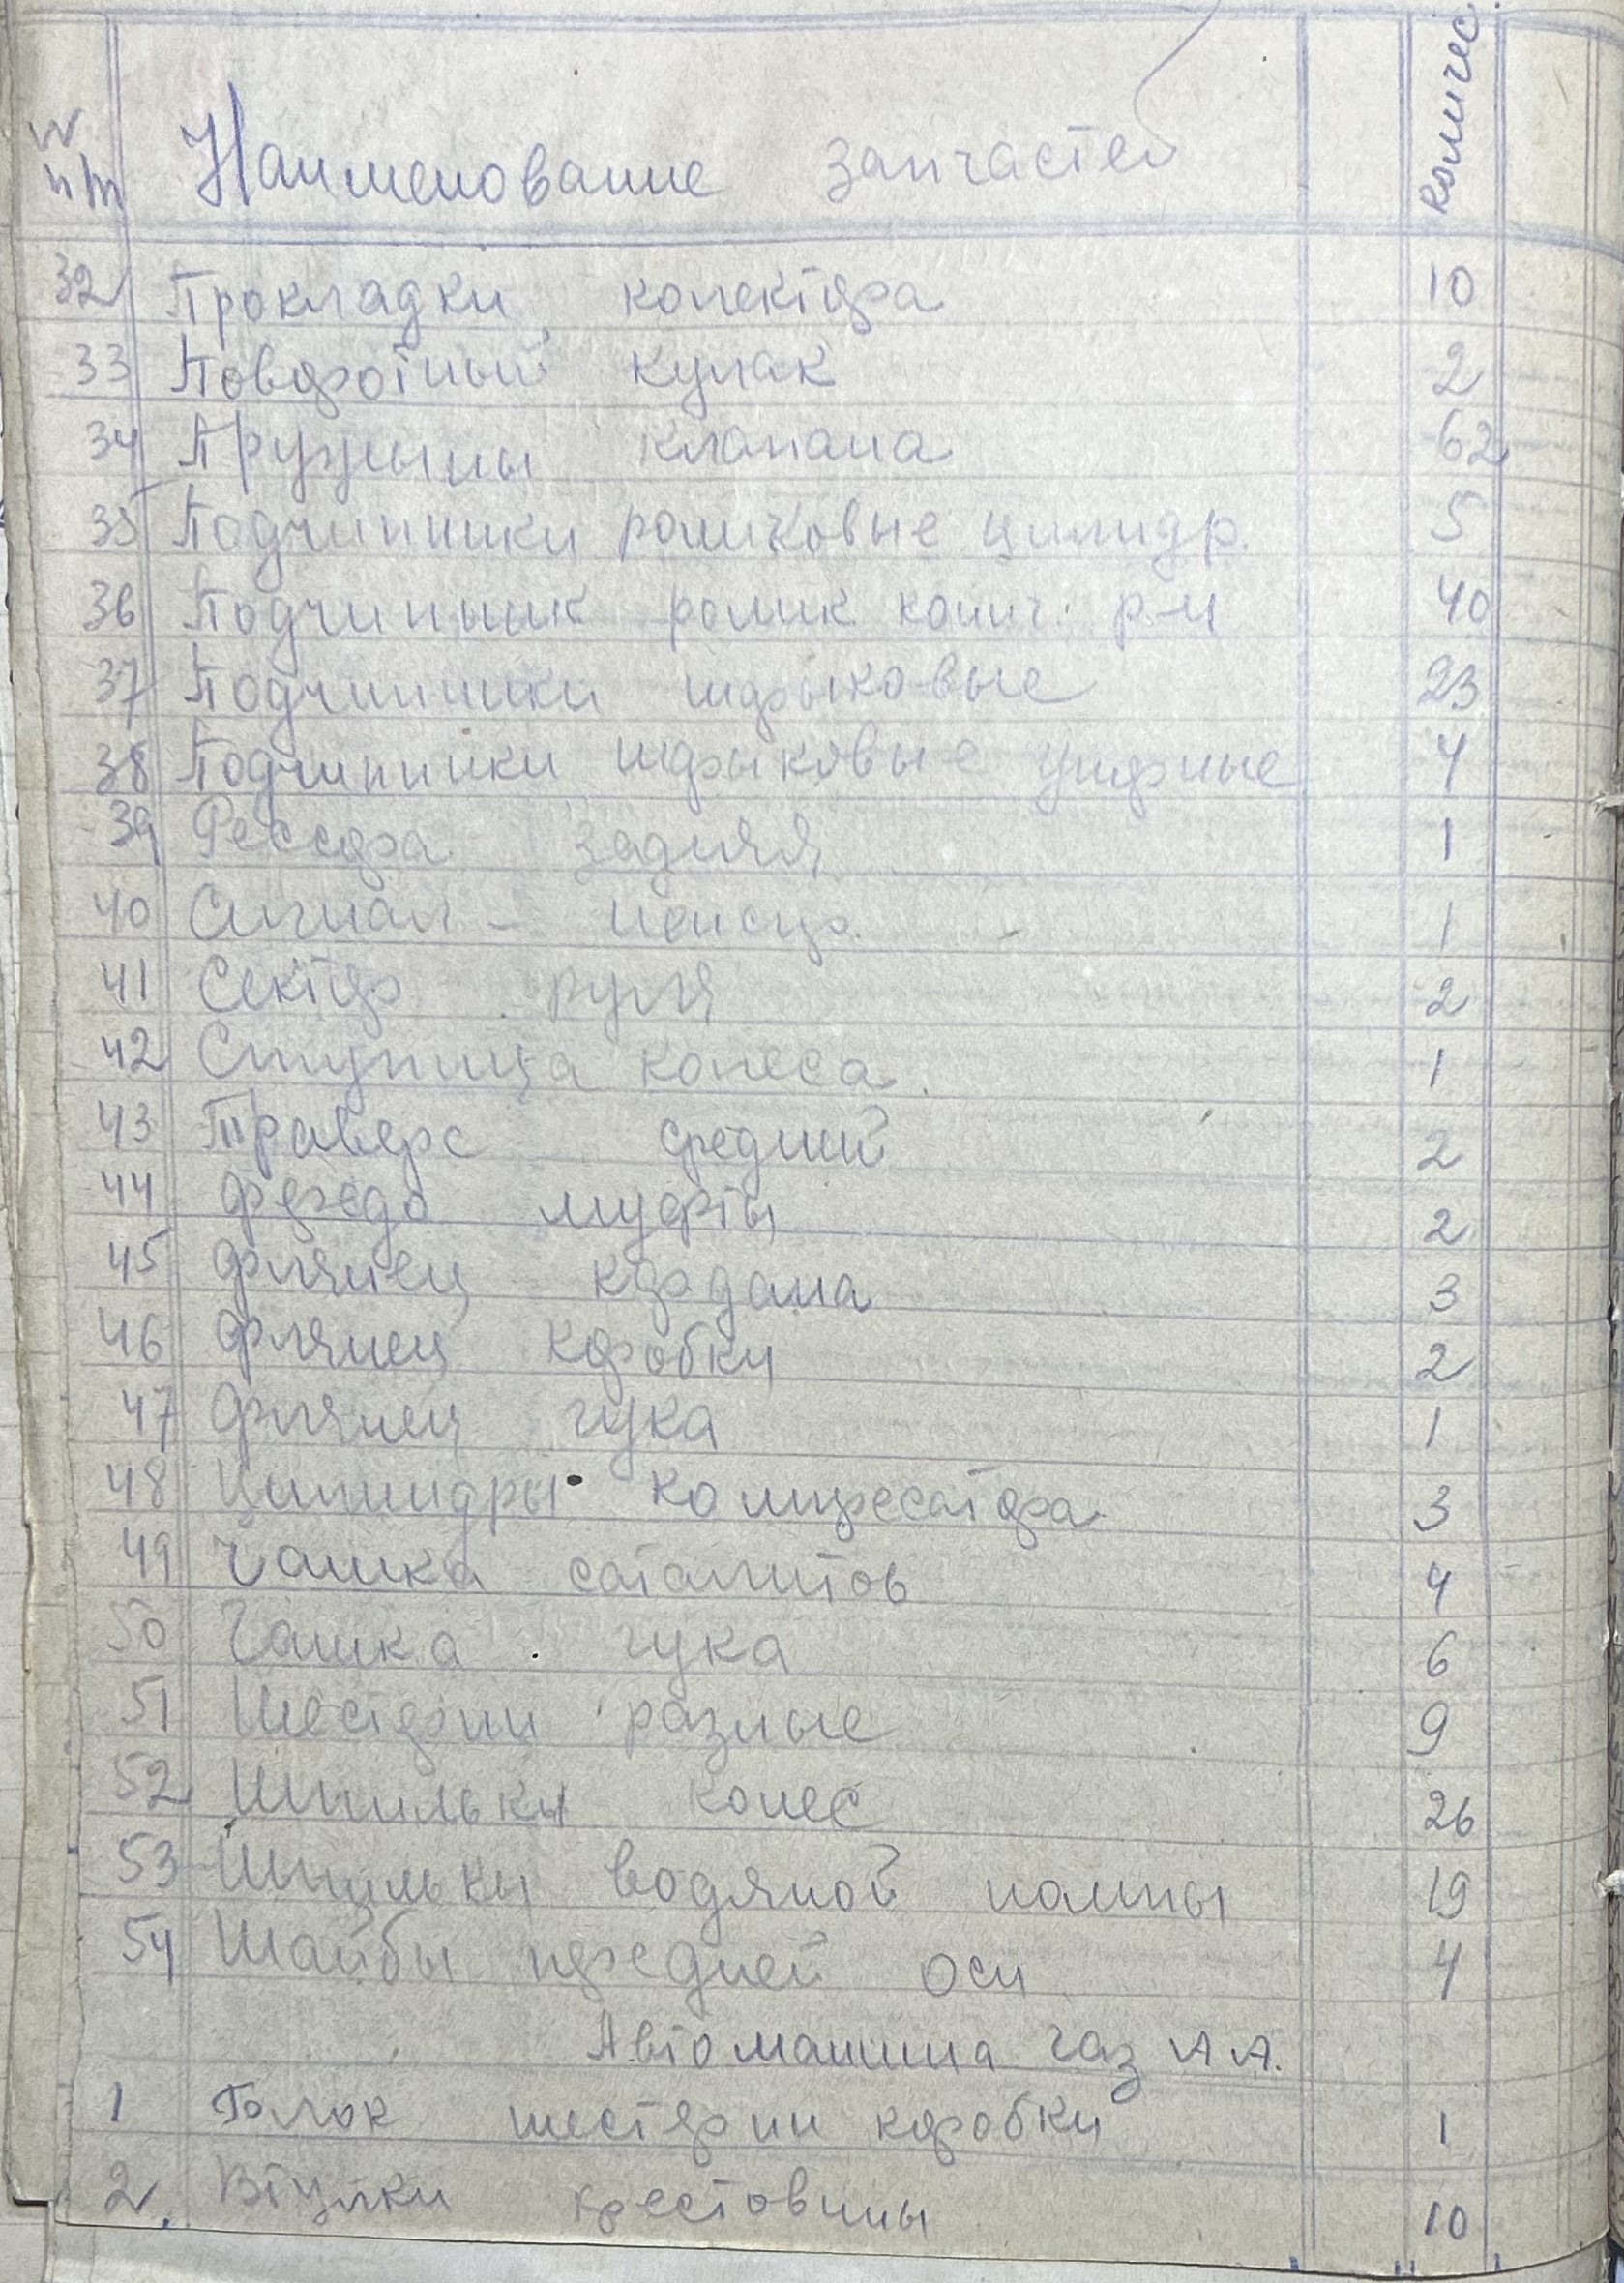 N п/п Наименование запчастей Количес
32 Прокладки колектора 10
33 Поворотный кулак 2
34 Пружыны клапана 62
35 Подчипники роликовые цилиндр. 5
36 Подчипник ролик конич. р-и 40
37 Подчипники шарыковые 23
38 Подчипники шарыковые упорные 4
39 Рессора задняя 1
40 Сигнал - 1
41 Сектор руля 2
42 Ступица колеса. 1
43 Траверс средний 2
44 Ферадо муфты 2
45 Флянец кардана 3
46 Флянец коробки 2
47 Флянец гука 1
48 Цилиндры компресатора 3
49 Чашка саталитов 4
50 Чашка гука 6
51 Шестерни разные 9
52 Шпильки колес 26
53 Шпильки водяной помпы 19
54 Шайбы передней оси 4
Автомашина газ АА.
1 шестерни коробки 1
2. Втулки крестовины 10